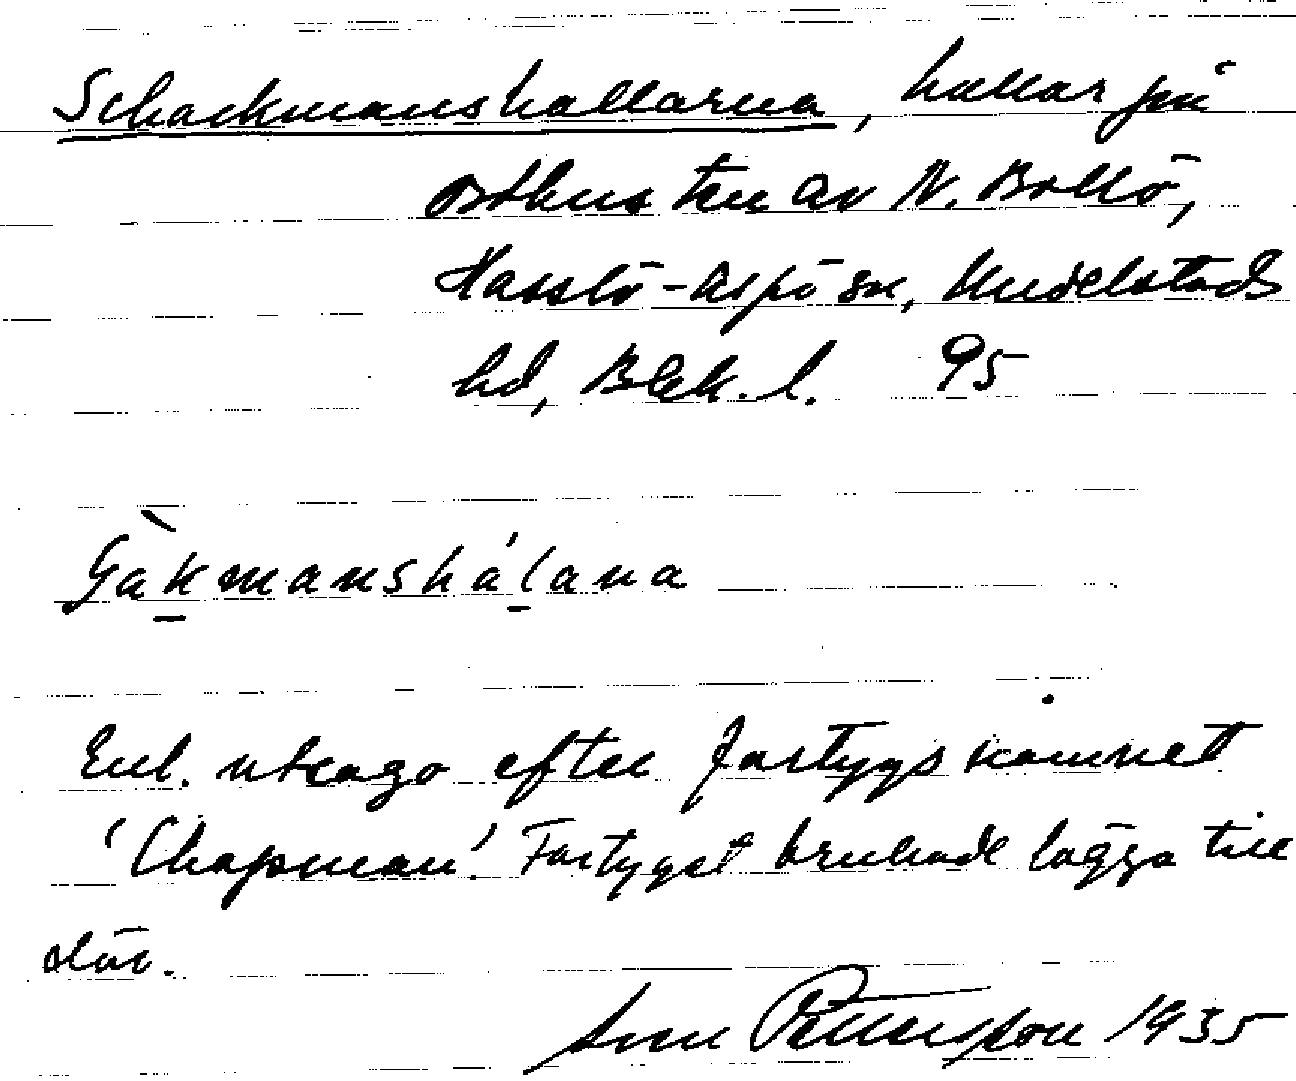 Schackmanshallarna, hallar på
ostkusten av N. Bollö,
Hasslö-Aspö sn, Medelstads
hd, Blek. l. 95
Gàkmansháḷana
Enl. utsago efter fartygsnamnet
'Chapman'. Fartyget brukade lägga till
där.
Sven Pettersson 1935